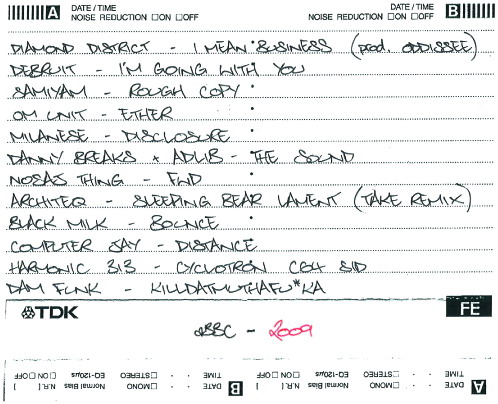 A DATE / TIME NOISE REDUCTION □ON □OFF
DATE / TIME NOISE REDUCTION □ON □OFF B
DIAMOND DISTRICT - I MEAN BUSINESS (prod. ODDISEE)
DEBRUIT - I'M GOING WITH YOU
SAMIYAM - ROUGH COPY
OM UNIT - ETHER
MILANESE - DISCLOSURE
DANNY BREAKS + ADLIB - THE SOUND
NOSAJ THING - FWD
ARCHITEQ - SLEEPING BEAR LAMENT (TAKE REMIX)
BLACK MILK - BOUNCE
COMPUTER JAY - DISTANCE
HARMONIC 313 - CYCLOTRON C64 SID
DAM FUNK - KILLDATMUTHAFU*KA
TDK FE
2BBC - 2009
A DATE TIME □MONO □STEREO Normal Bias EQ-120μs [N.R. □ON □OFF ]
B DATE TIME □MONO □STEREO Normal Bias EQ-120μs [N.R. □ON □OFF ]